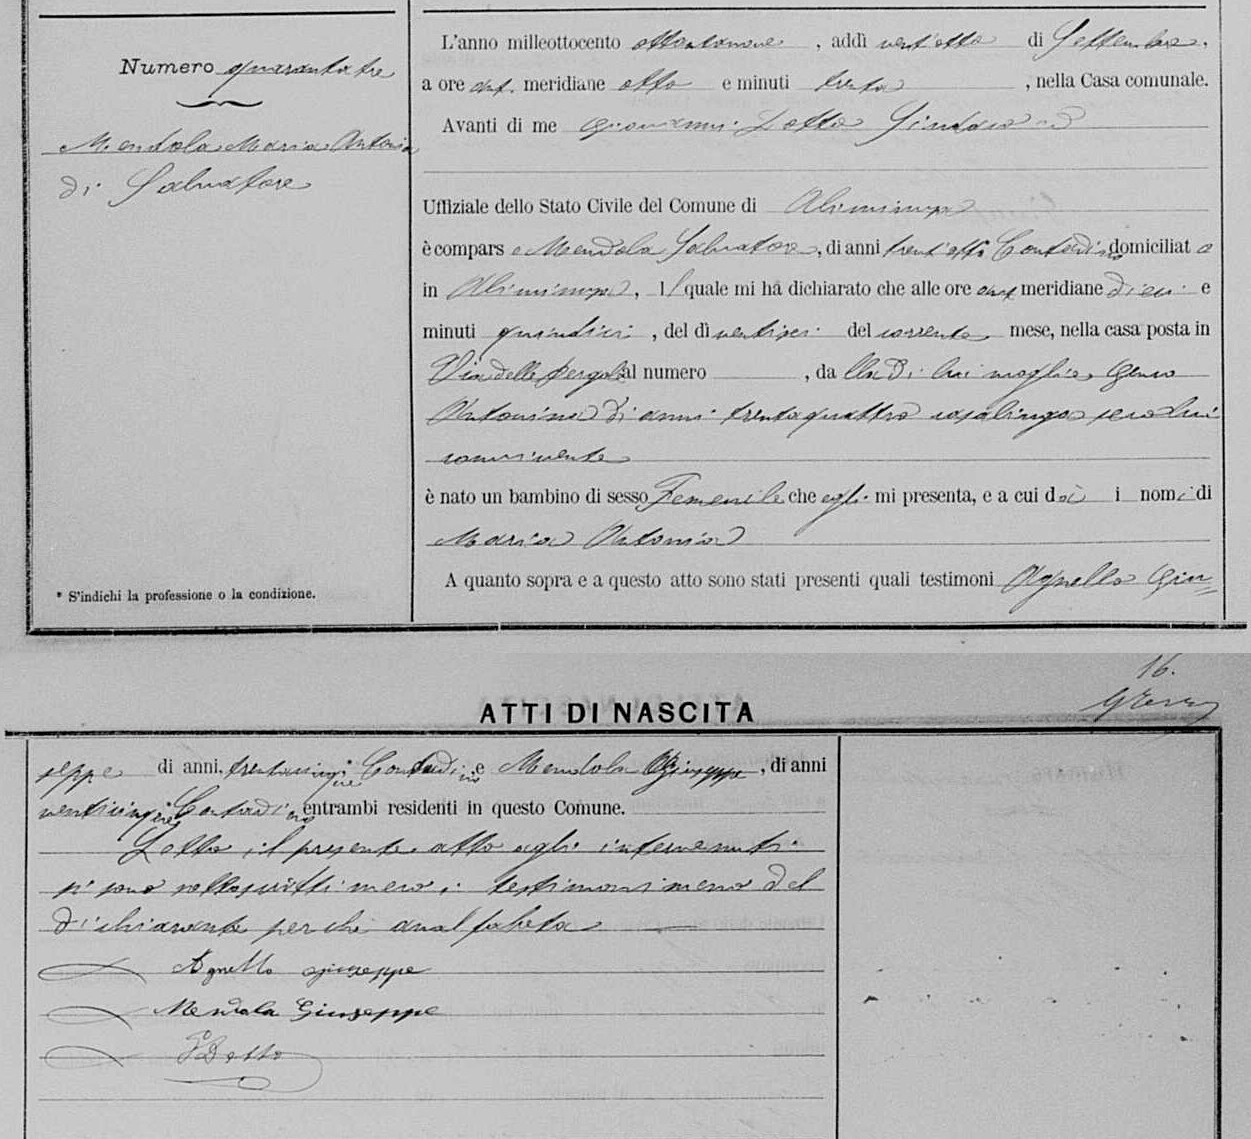 Numero quarantatre
Mendola Maria Antonia
di Salvatore
* S'indichi la professione o la condizione.
L'anno milleottocento ottantanove, addì vent'otto di Settembre,
a ore ant. meridiane otto e minuti trenta, nella Casa comunale.
Avanti di me Giovanni Sindaco
Uffiziale dello Stato Civile del Comune di Alimena
è comparso Mendola Salvatore, di anni trent'otto Contadino domiciliato
in Alimena, il quale mi ha dichiarato che alle ore ant. meridiane dieci e
minuti quindici, del dì ventisei del corrente mese, nella casa posta in
Via delle Pergole al numero , da lla di lui moglie
Antonina di anni trentaquattro casalinga seco lui
convivente
è nato un bambino di sesso Femenile che egli mi presenta, e a cui dà i nomi di
Maria Antonia
A quanto sopra e a questo atto sono stati presenti quali testimoni Agnello Giu=
16.
ATTI DI NASCITA
seppe di anni, trentacinque Contadino e Mendola Giuseppe, di anni
venticinque Contadino entrambi residenti in questo Comune.
Letto il presente atto agli intervenuti
si sono sottoscritti meco i testimoni meno del
dichiarante perchè analfabeta
Agnello Giuseppe
Mendola Giuseppe